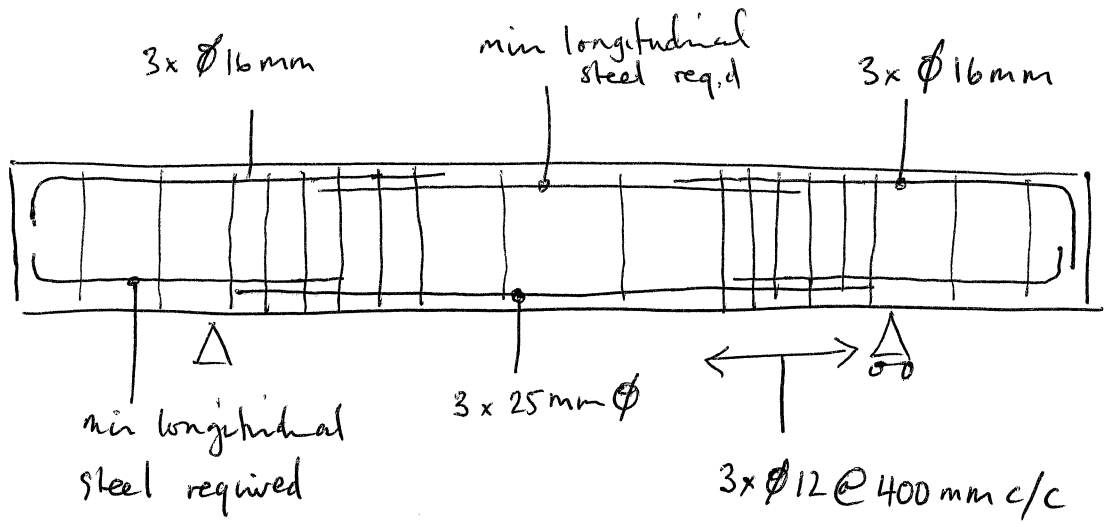 3x Ø16mm
min longitudinal
steel req.d
3x Ø16mm
min longitudinal
steel required
3 x 25mm Ø
3x Ø12 @ 400 mm c/c